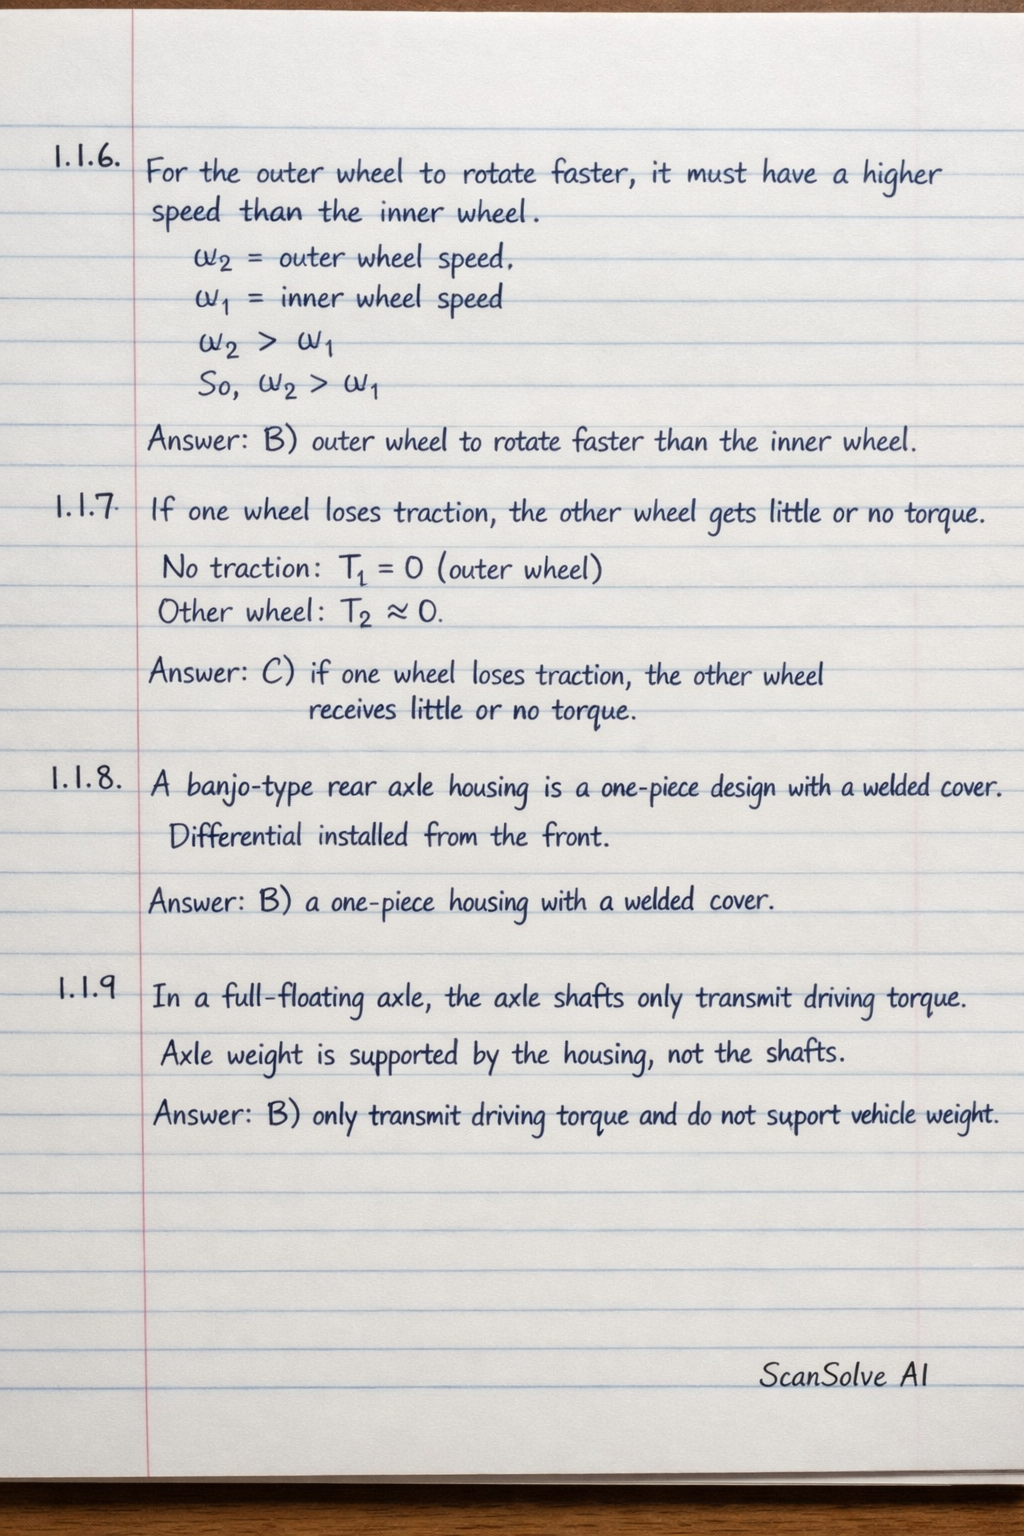 1.1.6. For the outer wheel to rotate faster, it must have a higher
speed than the inner wheel.
ω₂ = outer wheel speed.
ω₁ = inner wheel speed
ω₂ > ω₁
So, ω₂ > ω₁
Answer: B) outer wheel to rotate faster than the inner wheel.
1.1.7. If one wheel loses traction, the other wheel gets little or no torque.
No traction: T₁ = 0 (outer wheel)
Other wheel: T₂ ≈ 0.
Answer: C) if one wheel loses traction, the other wheel
receives little or no torque.
1.1.8. A banjo-type rear axle housing is a one-piece design with a welded cover.
Differential installed from the front.
Answer: B) a one-piece housing with a welded cover.
1.1.9 In a full-floating axle, the axle shafts only transmit driving torque.
Axle weight is supported by the housing, not the shafts.
Answer: B) only transmit driving torque and do not suport vehicle weight.
ScanSolve AI